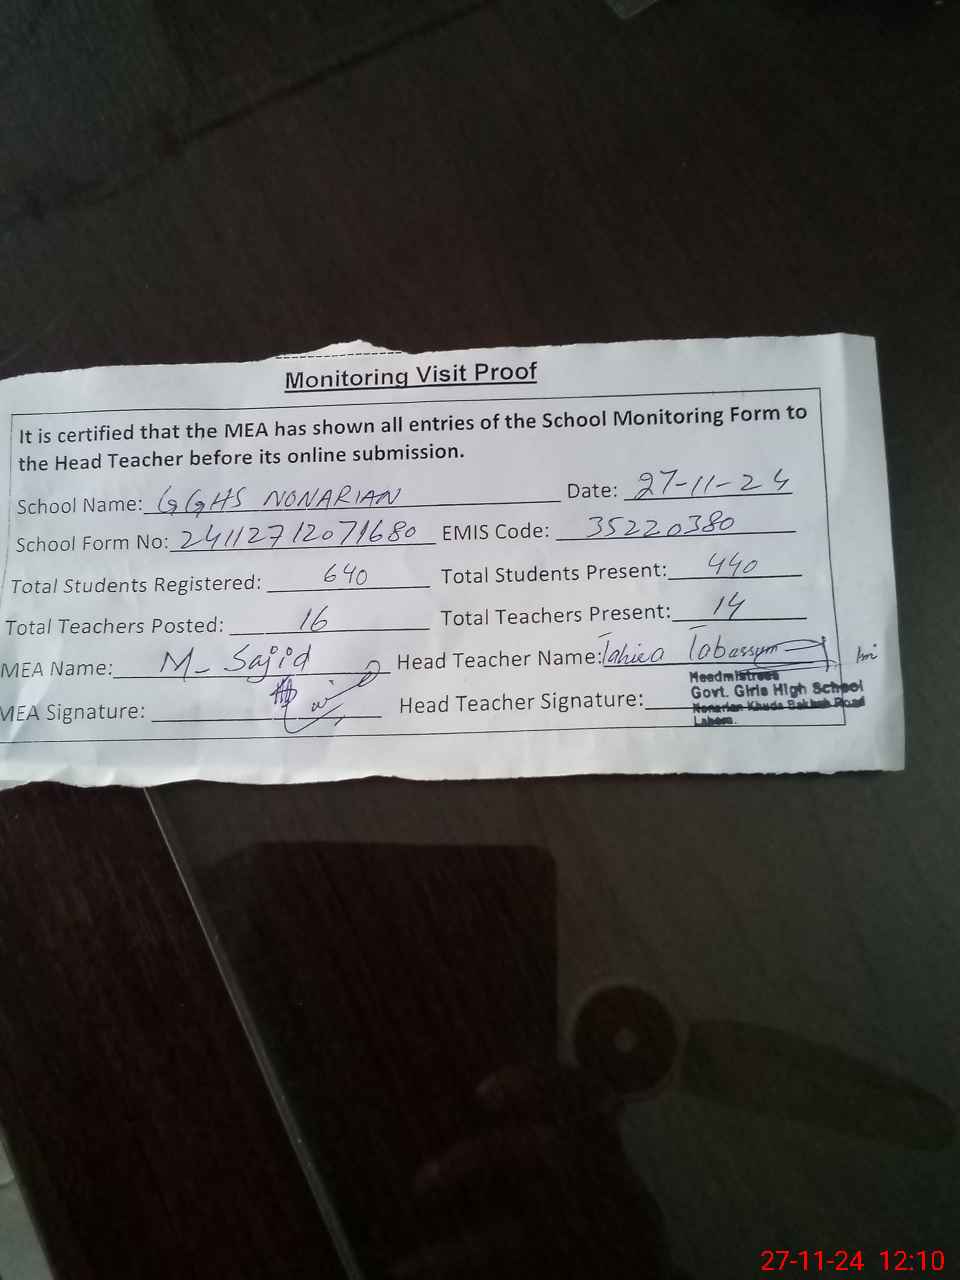 Monitoring Visit Proof
It is certified that the MEA has shown all entries of the School Monitoring Form to
the Head Teacher before its online submission.
School Name: GGHS NONARIAN Date: 27-11-24
School Form No: 24112712071680 EMIS Code: 35220380
Total Students Registered: 640 Total Students Present: 440
Total Teachers Posted: 16 Total Teachers Present: 14
MEA Name: M- Sajid Head Teacher Name: Tahira Tabassum
MEA Signature: Head Teacher Signature:
Headmistress
Govt. Girls High School
Nonarian Khuda Bakhsh Road
Lahore.
27-11-24 12:10